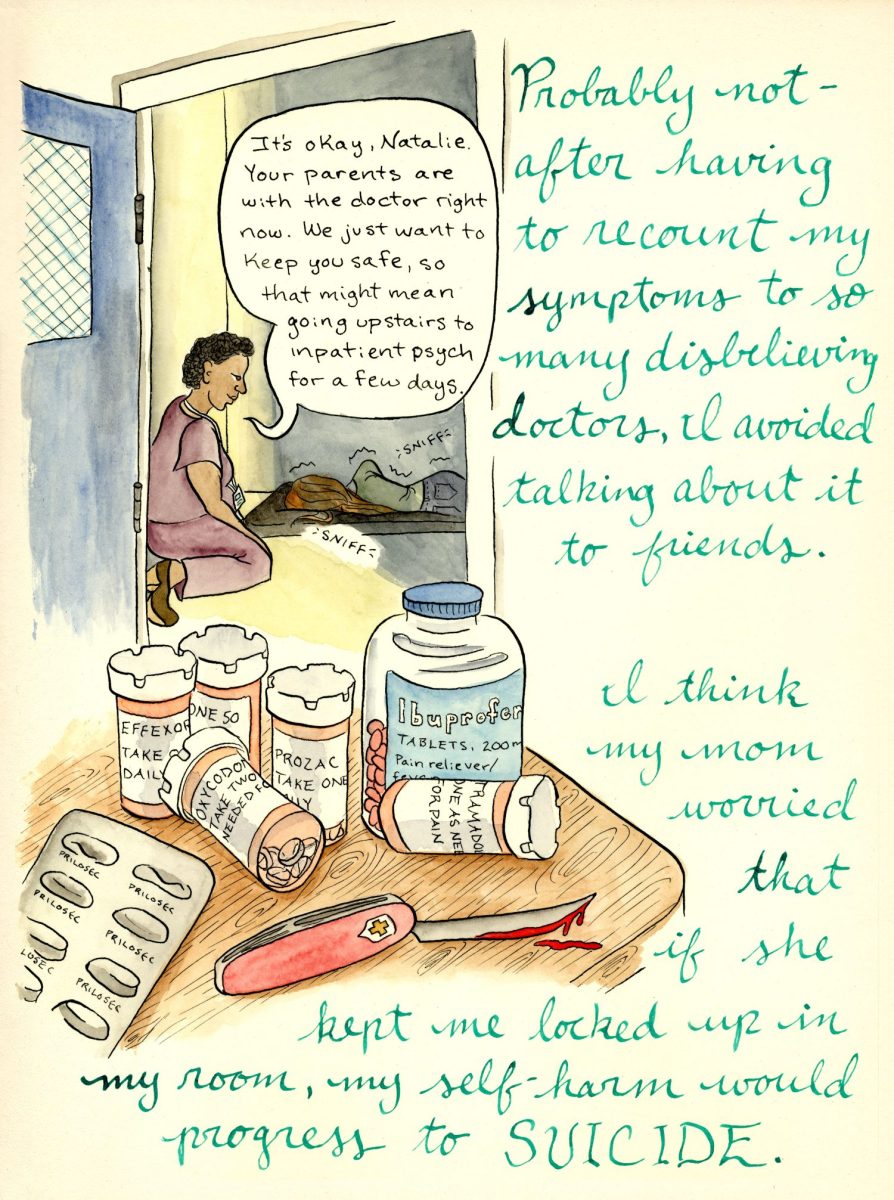 It's okay, Natalie.
Your parents are
with the doctor right
now. We just want to
keep you safe, so
that might mean
going upstairs to
inpatient psych
for a few days.
SNIFF
SNIFF
Probably not-
after having
to recount my
symptoms to so
many disbelieving
doctors, I avoided
talking about it
to friends.
EFFEXOR
TAKE
DAILY
ONE 50
OXYCODON
TAKE TWO
NEEDED FO
PROZAC
TAKE ONE
Ibuprofen
TABLETS, 200m
Pain reliever/
TRAMADOL
ONE AS NEE
FOR PAIN
PRILOSEC
PRILOSEC
PRILOSEC
PRILOSEC
LOSEC
PRILOSEC
I think
my mom
worried
that
if she
kept me locked up in
my room, my self-harm would
progress to SUICIDE.